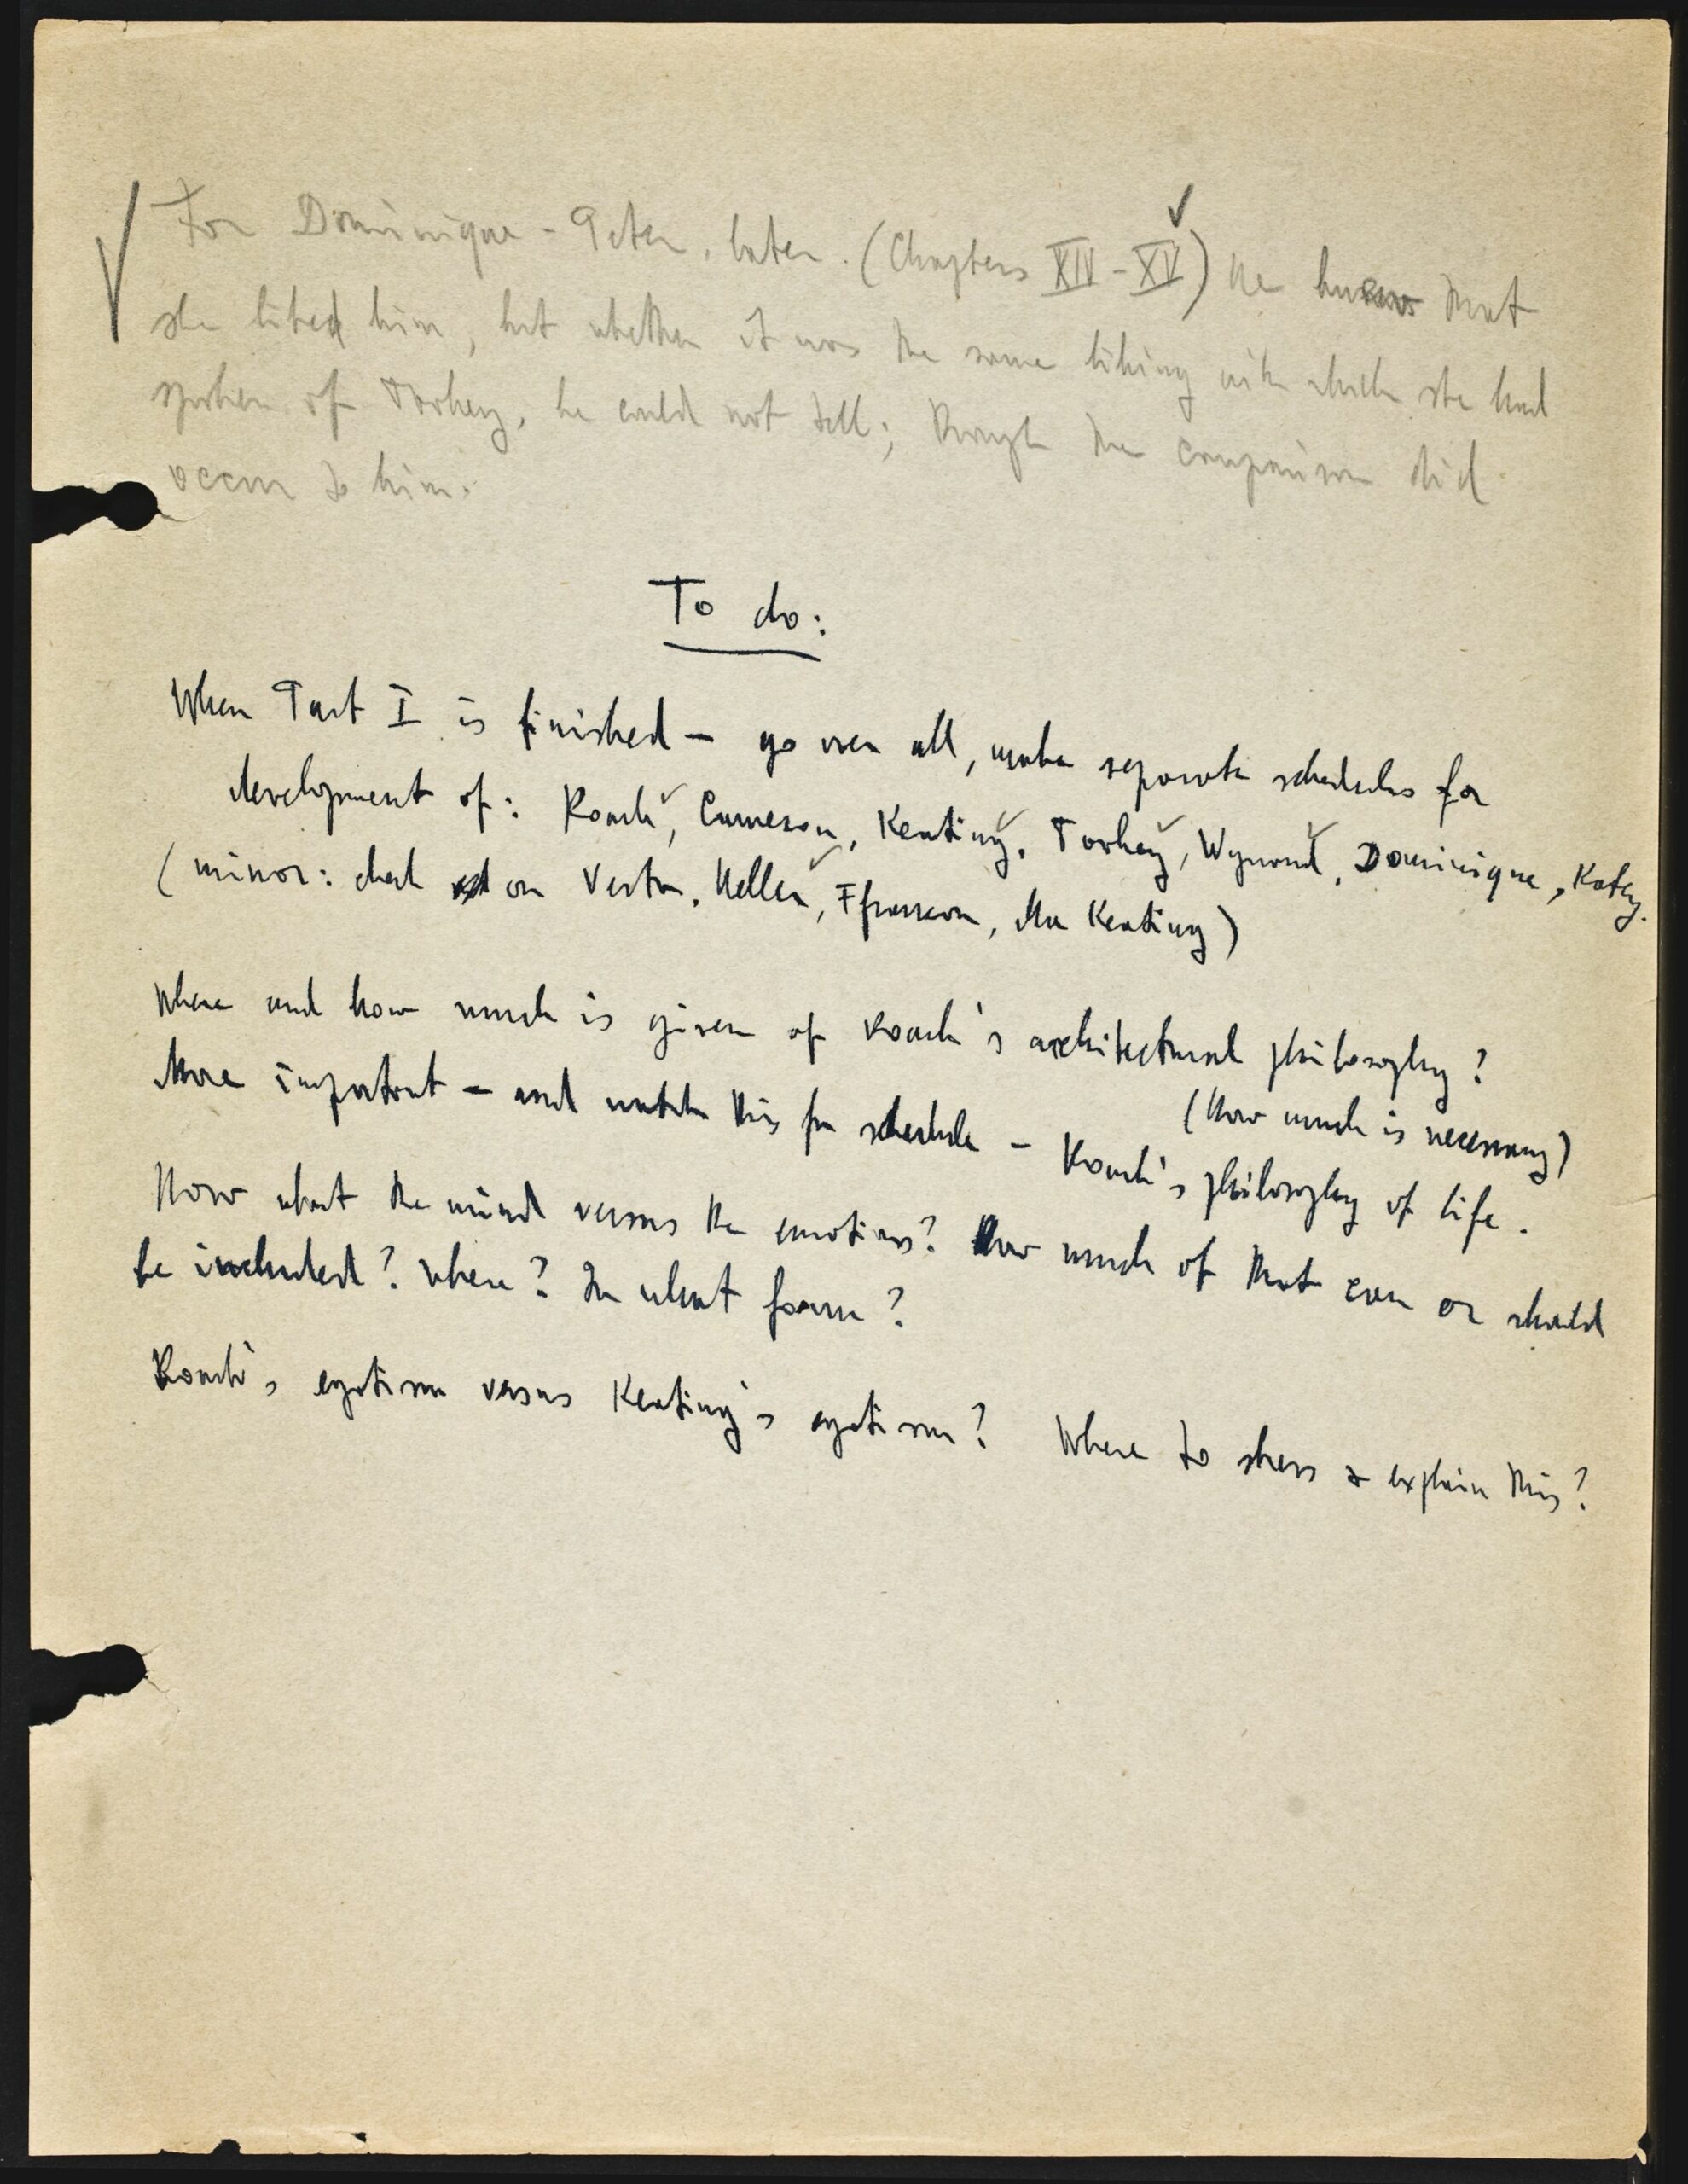 ✓ For Dominique - Peter, later. (Chapters XIV - XV ✓) He knows that
she liked him, but whether it was the same liking with which she had
spoken of Toohey, he could not tell; though the comparison did
occur to him.
To do:
When Part I is finished — go over all, make separate schedules for
development of: Roark ✓, Cameron, Keating ✓, Toohey ✓, Wynand ✓, Dominique, Katey.
(minor: check on Vesta, Heller ✓, Francon, Mrs Keating)
Where and how much is given of Roark's architectural philosophy?
(How much is necessary)
More important — and watch this for schedule — Roark's philosophy of life.
How about the mind versus the emotions? How much of that can or should
be included? Where? In what form?
Roark's egotism versus Keating's egotism? Where to stress & explain this?